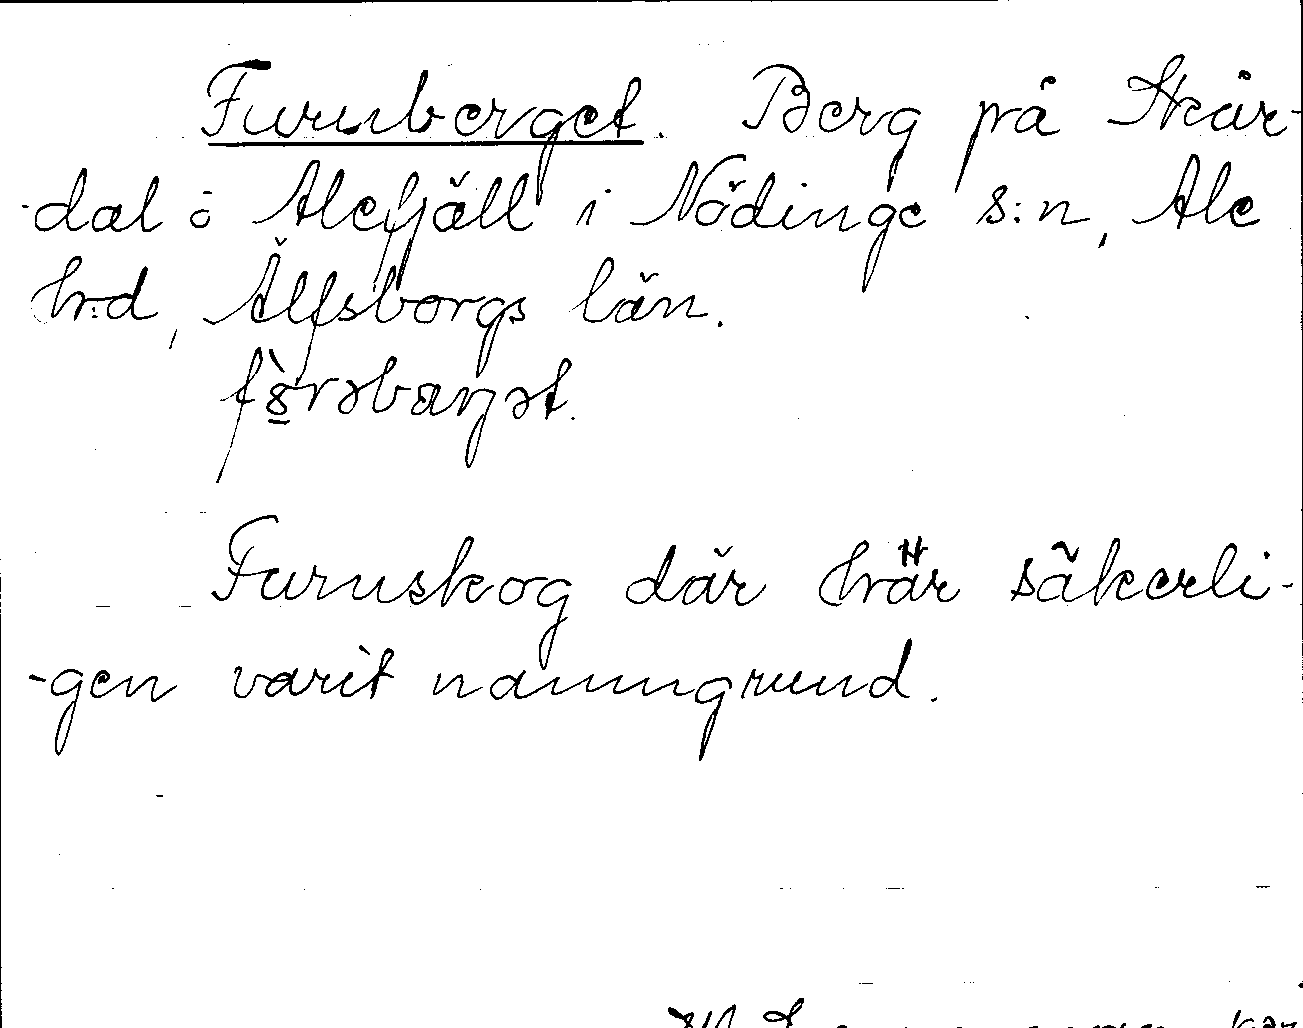 Furuberget. Berg på Skår-
-dal ö Alefjäll i Nödinge s:n, Ale
hrd, Älfsborgs län.
Furuskog där här säkerli-
-gen varit namngrund.